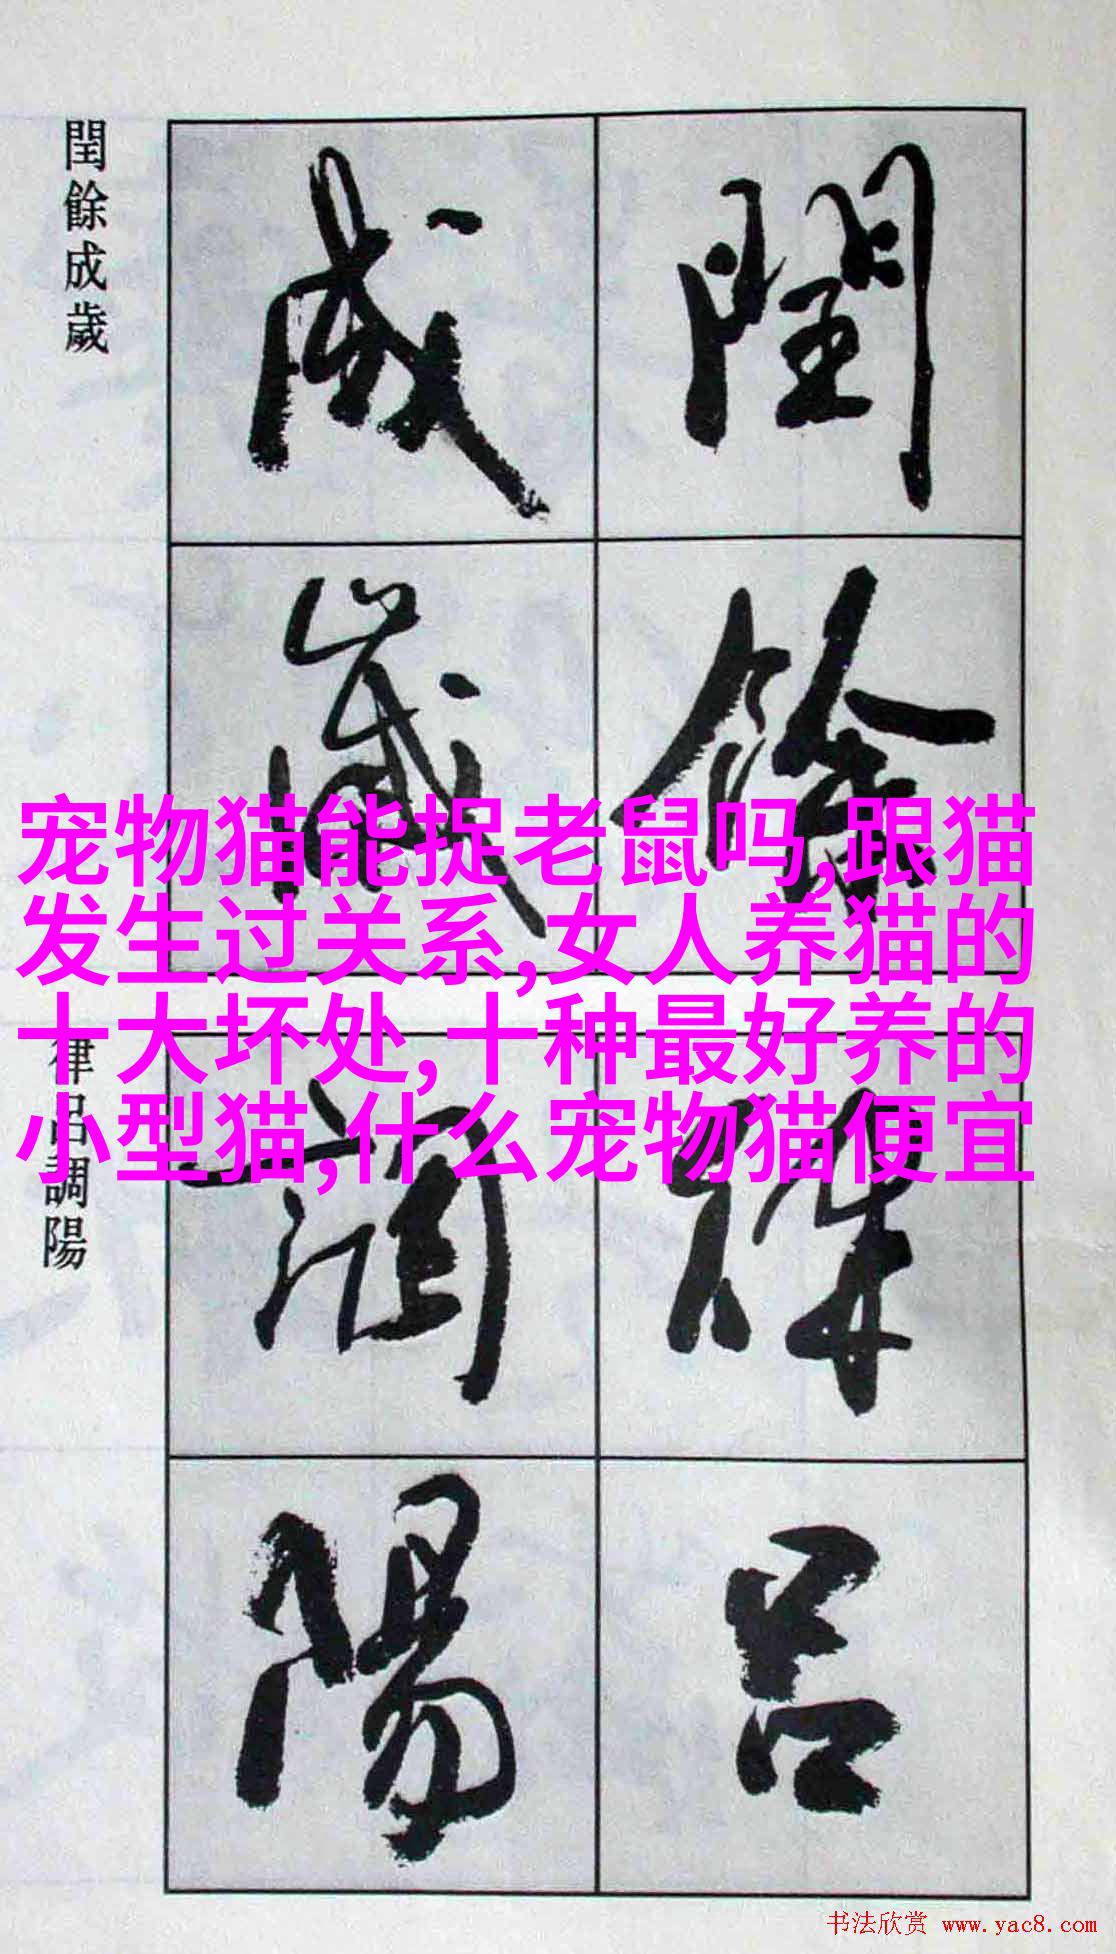 閏餘成歲
閏餘
成歲
宠物猫能捉老鼠吗,跟猫
发生过关系,女人养猫的
十大坏处,十种最好养的
小型猫,什么宠物猫便宜
律呂調陽
律呂
調陽
书法欣赏 www.yac8.com